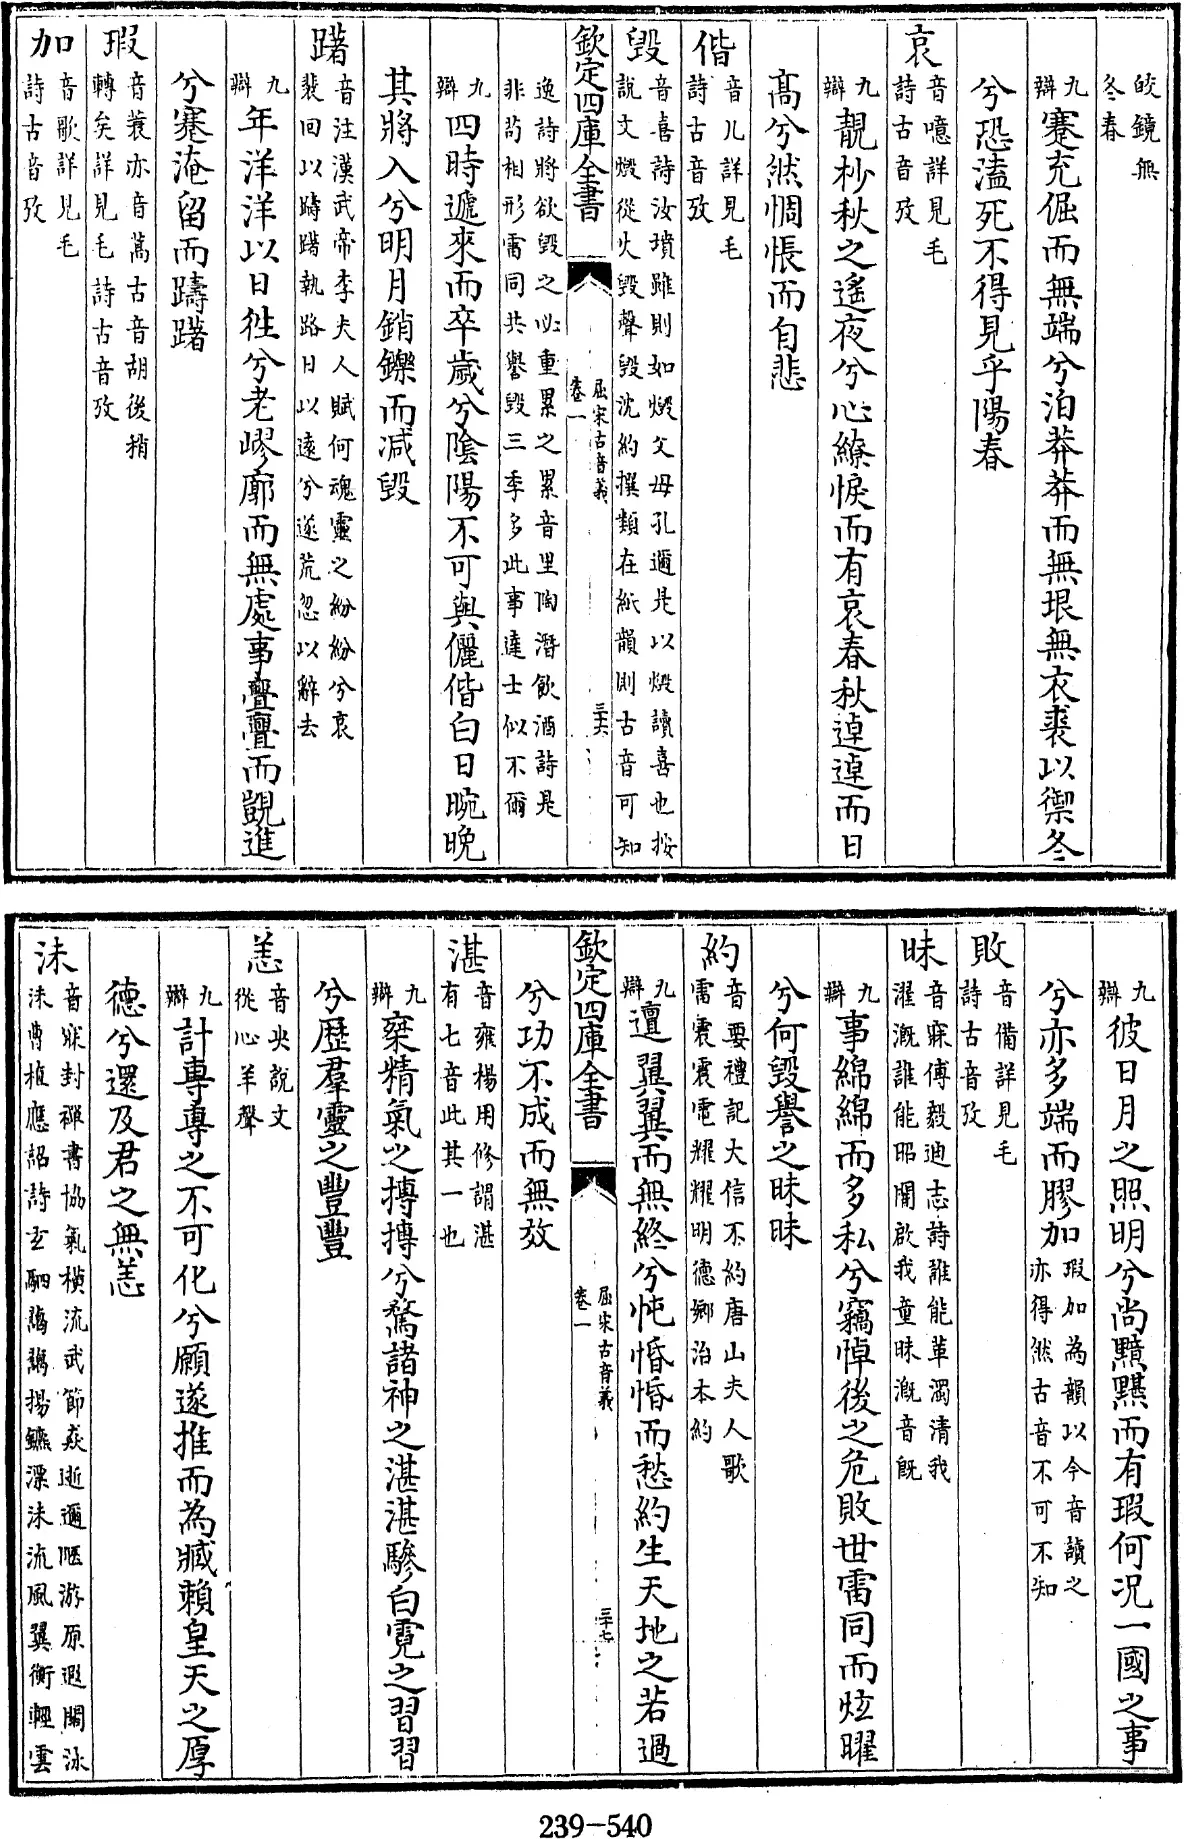 皎鏡無
冬春
九辯 蹇充倔而無端兮泊莽莽而無垠無衣裘以禦冬
兮恐溘死不得見乎陽春
哀 音噫詳見毛
詩古音攷
九辯 靚杪秋之遙夜兮心繚悷而有哀春秋逴逴而日
高兮然惆悵而自悲
偕 音几詳見毛
詩古音攷
毀 音喜詩汝墳雖則如燬父母孔邇是以燬讀喜也按
說文燬從火毀聲毀沈約撰類在紙韻則古音可知
欽定四庫全書
屈宋古音義
卷一
三十六
逸詩將欲毀之必重累之累音里陶潛飲酒詩是
非茍相形雷同共譽毀三季多此事達士似不爾
九辯 四時遞來而卒歲兮陰陽不可與儷偕白日晼晚
其將入兮明月銷鑠而減毀
躇 音注漢武帝李夫人賦何魂靈之紛紛兮哀
裴回以躊躇執路日以遠兮遂荒忽以辭去
九辯 年洋洋以日往兮老嵺廓而無處事亹亹而覬進
兮蹇淹留而躊躇
瑕 音蓑亦音蒿古音胡後稍
轉矣詳見毛詩古音攷
加 音歌詳見毛
詩古音攷
九辯 彼日月之照明兮尚黯黮而有瑕何况一國之事
兮亦多端而膠加 瑕加為韻以今音讀之
亦得然古音不可不知
敗 音備詳見毛
詩古音攷
昧 音寐傅毅迪志詩誰能革濁清我
濯溉誰能昭闇啟我童昧溉音旣
九辯 事綿綿而多私兮竊悼後之危敗世雷同而炫曜
兮何毀譽之昧昧
約 音要禮記大信不約唐山夫人歌
雷震震電耀耀明德鄉治本約
九辯 邅翼翼而無終兮忳惛惛而愁約生天地之若過
欽定四庫全書
屈宋古音義
卷一
三十七
兮功不成而無效
湛 音雍楊用修謂湛
有七音此其一也
九辯 棄精氣之摶摶兮騖諸神之湛湛驂白霓之習習
兮歷羣靈之豐豐
恙 音央說文
從心羊聲
九辯 計專專之不可化兮願遂推而為臧賴皇天之厚
德兮還及君之無恙
沬 音寐封禪書協氣橫流武節猋逝邇陿游原遐闊泳
沬曹植應詔詩玄駟藹藹揚鑣漂沬流風翼衡輕雲
239-540